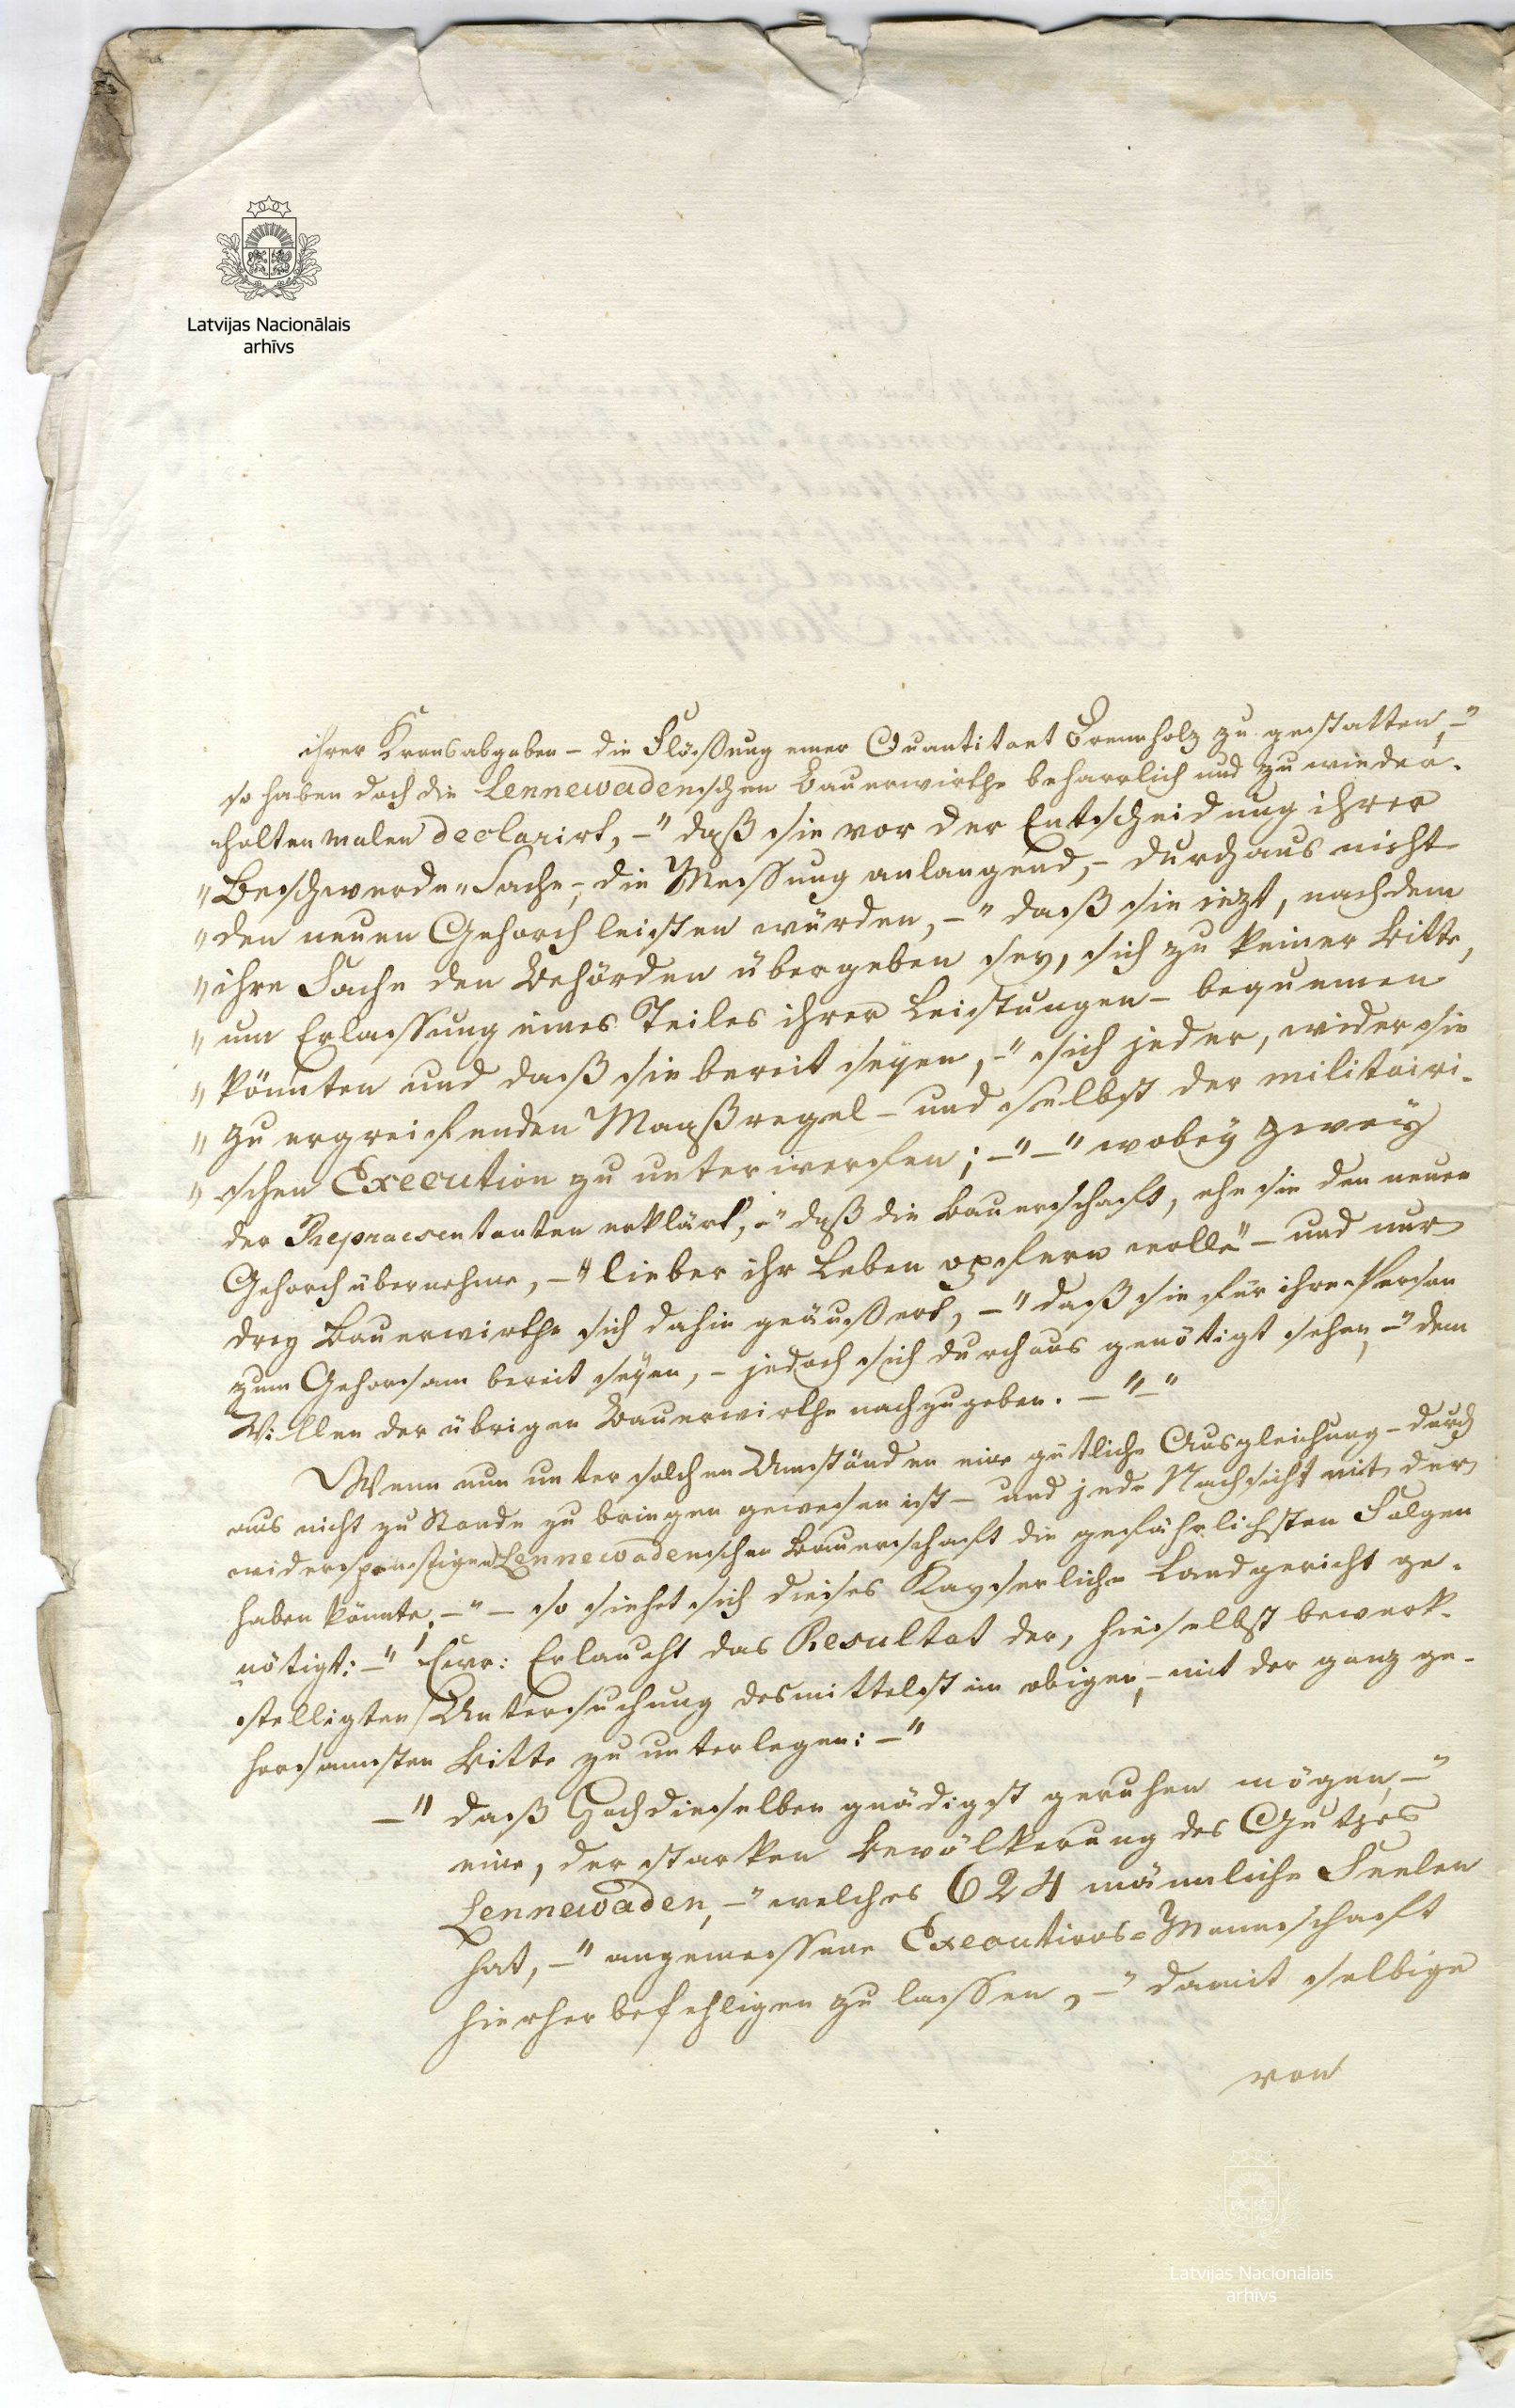 Latvijas Nacionālais
arhīvs
ihrer Kronsabgaben – die Flössung einer Quantitaet Brennholz zu gestatten, –"
so haben doch die Lennewadenschen Bauerwirthe beharrlich und zu wieder-
holten malen declarirt, –" daß sie vor der Entscheidung ihrer
" Beschwerde-Sache, – die Messung anlangend, – durchaus nicht
" den neuen Gehorch leisten würden, –" daß sie iezt, nachdem
" ihre Sache den Behörden übergeben sey, sich zu keiner Bitte,
" um Erlassung eines Teiles ihrer Leistungen – bequemen
" könnten und daß sie bereit seyen, –" sich jeder, wider sie
" zu ergreifenden Maaßregel – und selbst der militairi-
" schen Execution zu unterwerfen; –"–" wobey zwey
der Repraesentanten erklärt, –" daß die Bauerschaft, ehe sie den neuen
Gehorch übernehme, –" lieber ihr Leben opfern wolle" – und nur
drey Bauerwirthe sich dahin geäussert, –" daß sie für ihre Person
zum Gehorsam bereit seyen, – jedoch sich durchaus genötigt sehen, –" dem
Willen der übrigen Bauerwirthe nachzugeben. –"–"
Wenn nun unter solchen Umständen eine gütliche Ausgleichung – durch
aus nicht zu Stande zu bringen gewesen ist – und jede Nachsicht mit der
widerspenstigen Lennewadenschen Bauerschaft die gefährlichsten Folgen
haben könnte, –" – so siehet sich dieses Kayserliche Landgericht ge-
nötigt: –" Ewr: Erlaucht das Resultat der, hieselbst bewerk-
stelligten Untersuchung desmittelst im obigen, – mit der ganz ge-
horsamsten Bitte zu unterlegen: –"
–" daß Hochdieselben gnädigst geruhen mögen, –"
eine, der starken Bevölkerung des Gutes
Lennewaden, –" welches 624 männliche Seelen
hat, –" angemessene Executions-Mannschaft
hierher befehligen zu lassen, –" damit selbige
von
Latvijas Nacionālais
arhīvs